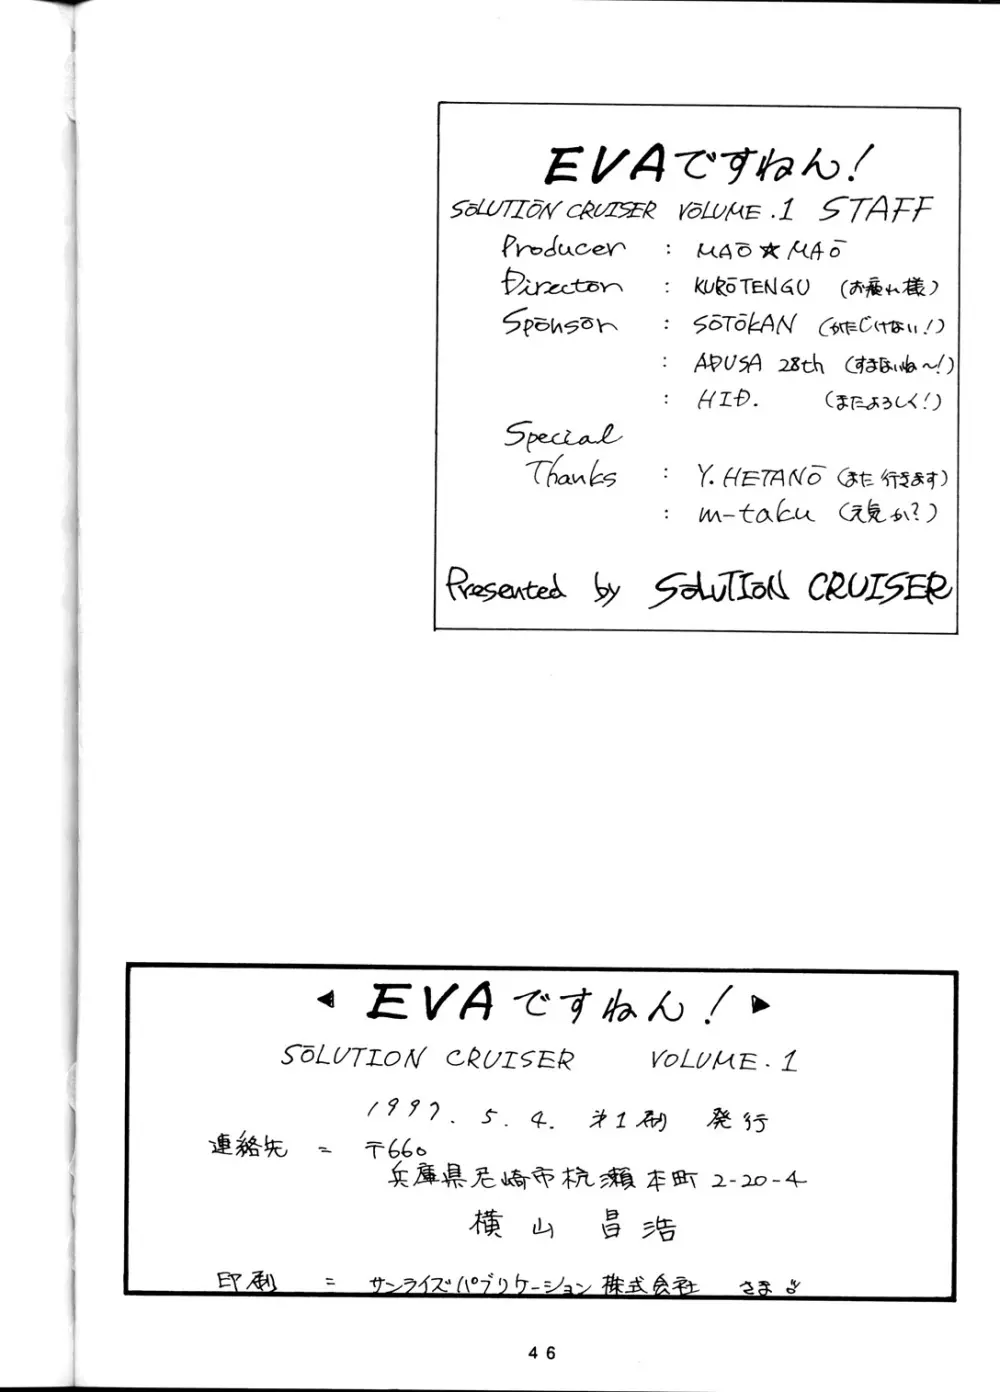 EVAですねん!
SOLUTION CRUISER VOLUME.1 STAFF
Producer : MAO★MAO
Director : KUROTENGU (お疲れ様)
Sponsor : SOTOKAN (かたじけない!)
: ADUSA 28th (すまないね〜!)
: HID. (またよろしく!)
Special
Thanks : Y.HETANO (また行きます)
: m-taku (元気か?)
Presented by SOLUTION CRUISER
◀ EVAですねん! ▶
SOLUTION CRUISER VOLUME.1
1997.5.4. 才1刷 発行
連絡先 = 〒660
兵庫県尼崎市杭瀬本町2-20-4
横山 昌浩
印刷 = サンライズパブリケーション株式会社 さま
46